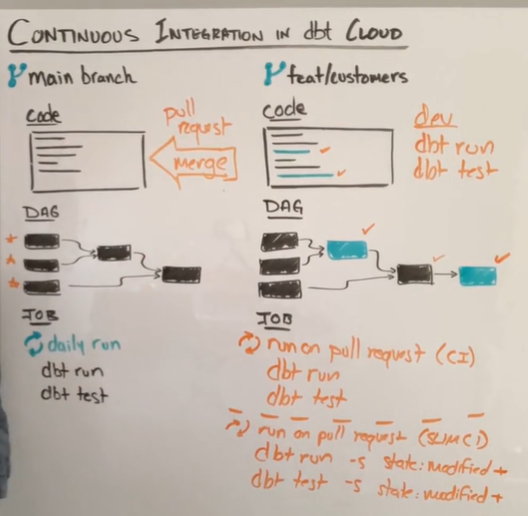 CONTINUOUS INTEGRATION IN dbt CLOUD
main branch
Code
pull request
merge
DAG
JOB
daily run
dbt run
dbt test
feat/customers
Code
dev
dbt run
dbt test
DAG
JOB
run on pull request (CI)
dbt run
dbt test
run on pull request (SLIM CI)
dbt run -s state:modified+
dbt test -s state:modified+